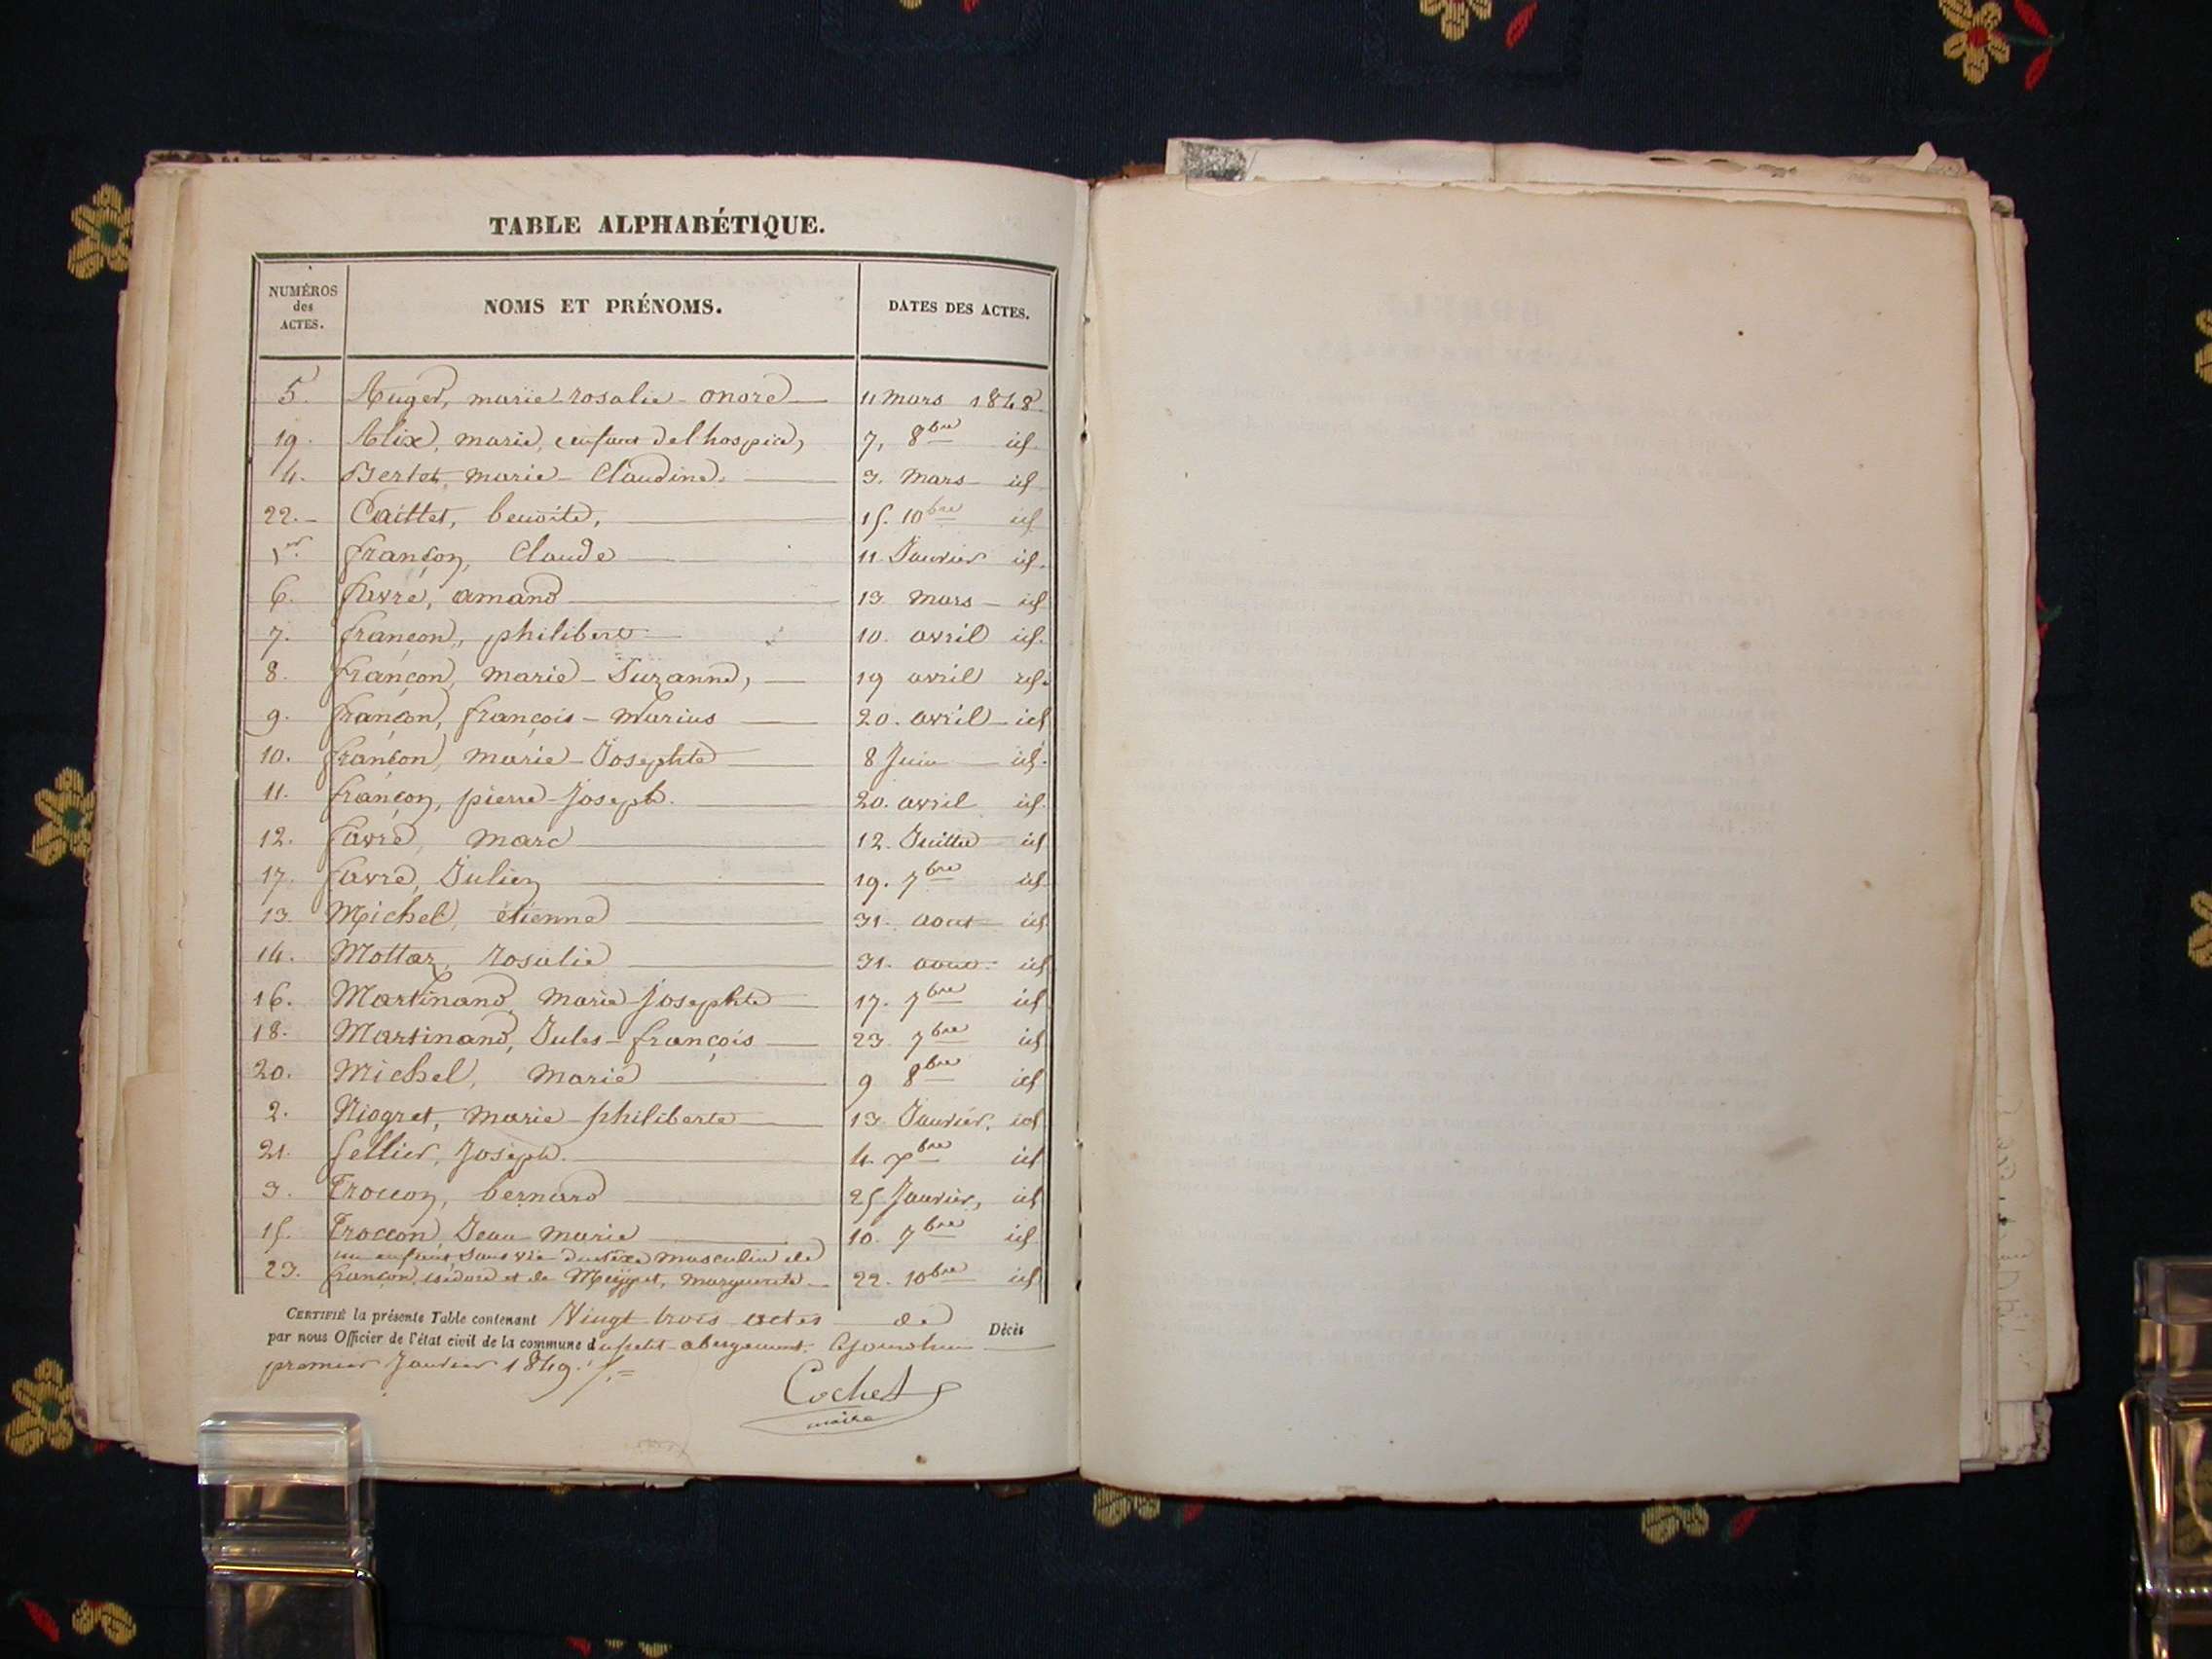 TABLE ALPHABÉTIQUE.
NUMÉROS des ACTES. NOMS ET PRÉNOMS. DATES DES ACTES.
5. Auger, marie rosalie - onore 11 mars 1848.
19. Alix, marie, enfant del hospice, 7, 8bre id
4. Bertet, marie - Claudine. 3. mars id
22. Caillet, benoite, 15. 10bre id
1er françon, Claude 11. Janvier id.
6. favre, amand 13 mars id
7. françon, philibert 10. avril id.
8. françon, marie - Suzanne, 19 avril id.
9. françon, françois - marius 20. avril id
10. françon, marie - Josephte 8 Juin id.
11. françon, pierre - Joseph. 20. avril id.
12. favre, marc 12. Juillet id
17. favre, Julien 19. 7bre id
13. Michel, étienne 31. aout id
14. Mottaz, rosalie 31. aout id
16. Martinand, marie Josephte 17. 7bre id
18. Martinand, Jules - françois 23 7bre id
20. Michel, marie 9 8bre id
2. Niogret, marie philiberte 13. Janvier, id
21. Sellier, Joseph. 4. bre id
3. Troccon, bernard 25 Janvier, id
15. Troccon, Jean marie 10. 7bre id
un enfant sans vie du sexe masculin de
23. françon, isidore et de marguerite 22. 10bre id
CERTIFIÉ la présente Table contenant Vingt trois actes de Décès
par nous Officier de l'état civil de la commune du petit - abergement. Ajourdhui
premier Janvier 1849.
Cochet
maire